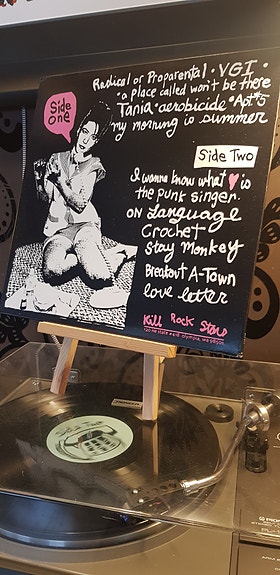 Side
One
Radical or Proparental • VGI •
• a place called won't be there
Tania • aerobicide • Apt #5
my morning is summer
Side Two
I wanna know what ♥ is
the punk singer.
on Language
Crochet
Stay Monkey
Breakout A-Town
love letter
Kill Rock Stars
120 NE State #418 Olympia, WA 98501
Side Two
PIONEER